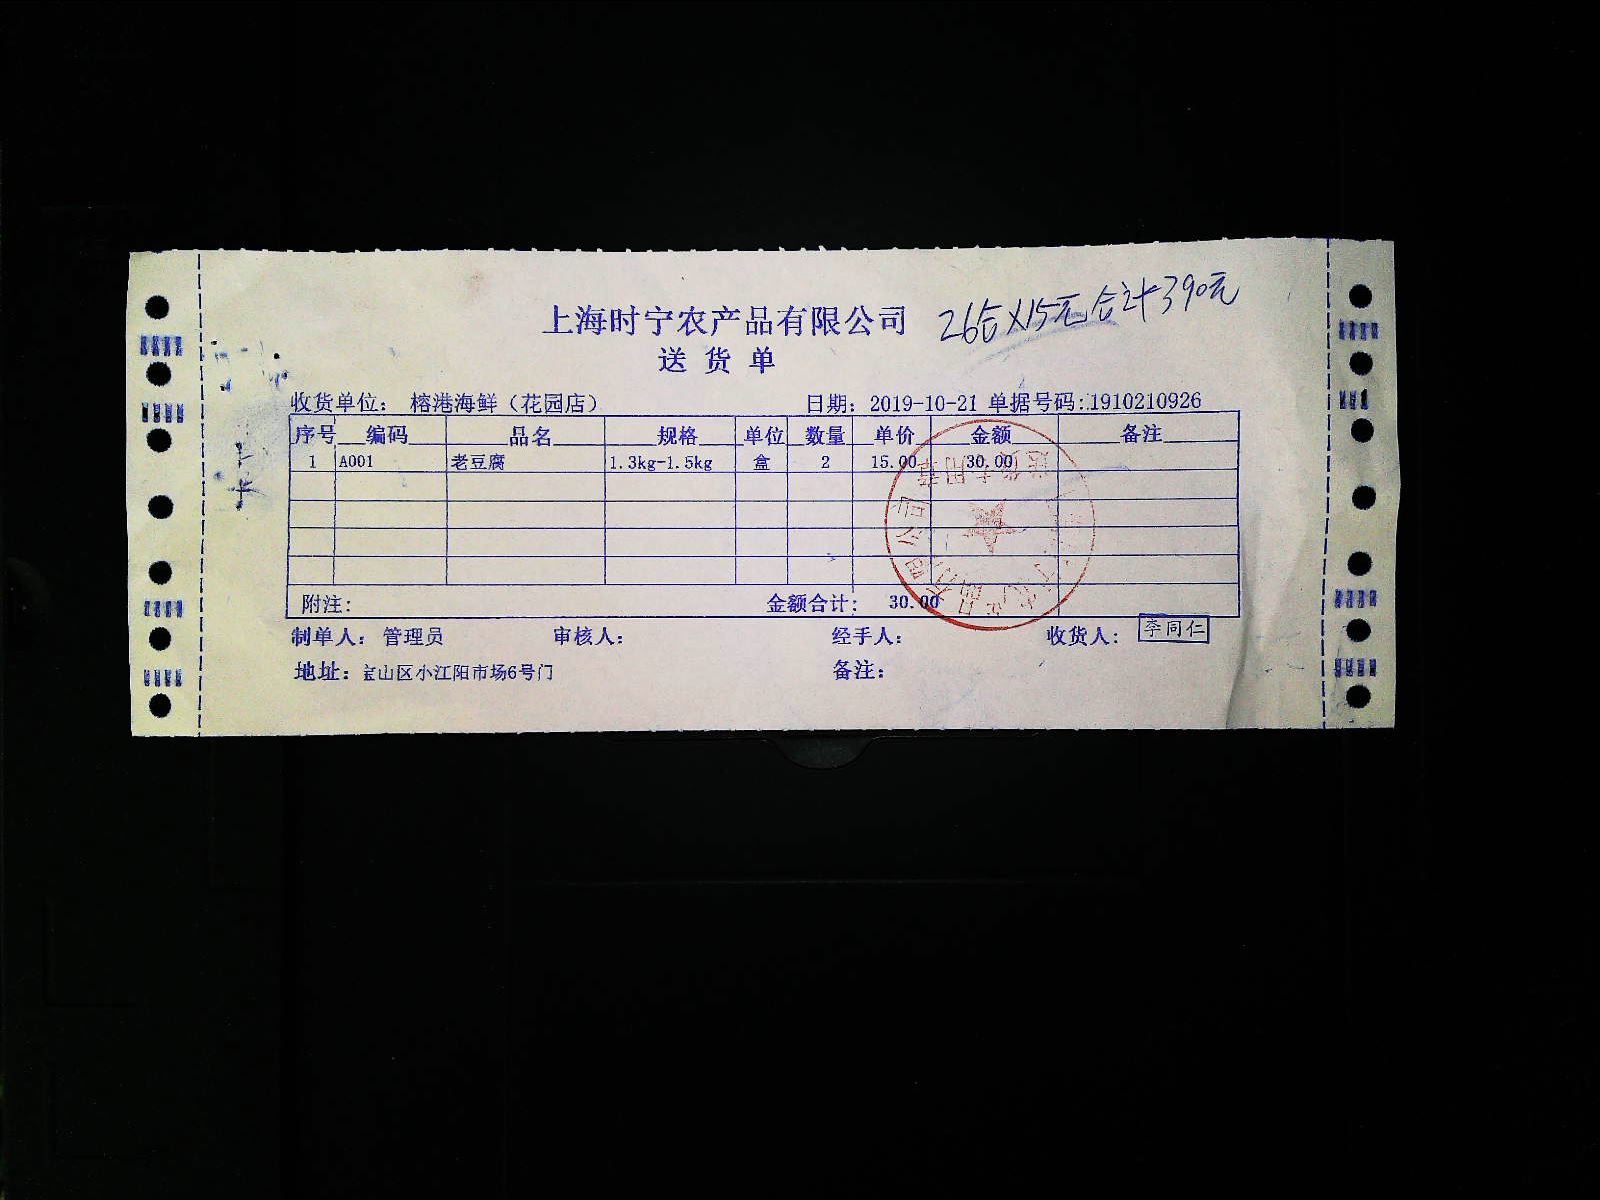 上海时宁农产品有限公司
26合×15元合计390元
送 货 单
收货单位： 榕港海鲜（花园店） 日期： 2019-10-21 单据号码:1910210926
序号 编码 品名 规格 单位 数量 单价 金额 备注
1 A001 老豆腐 1.3kg-1.5kg 盒 2 15.00 30.00
附注: 金额合计: 30.00
制单人： 管理员 审核人： 经手人： 收货人： 李同仁
地址：宝山区小江阳市场6号门 备注：
送货专用章